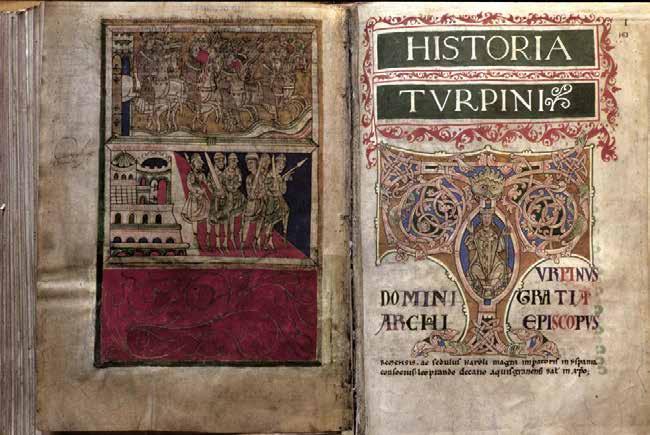 HISTORIA
TVRPINI
TVRPINVS
DOMINI GRATIA
ARCHI EPISCOPVS
REMENSIS. ac sedulus karoli magni impatoris in yspania
consocius leoprando decano aquisgranensi sat in xpo;